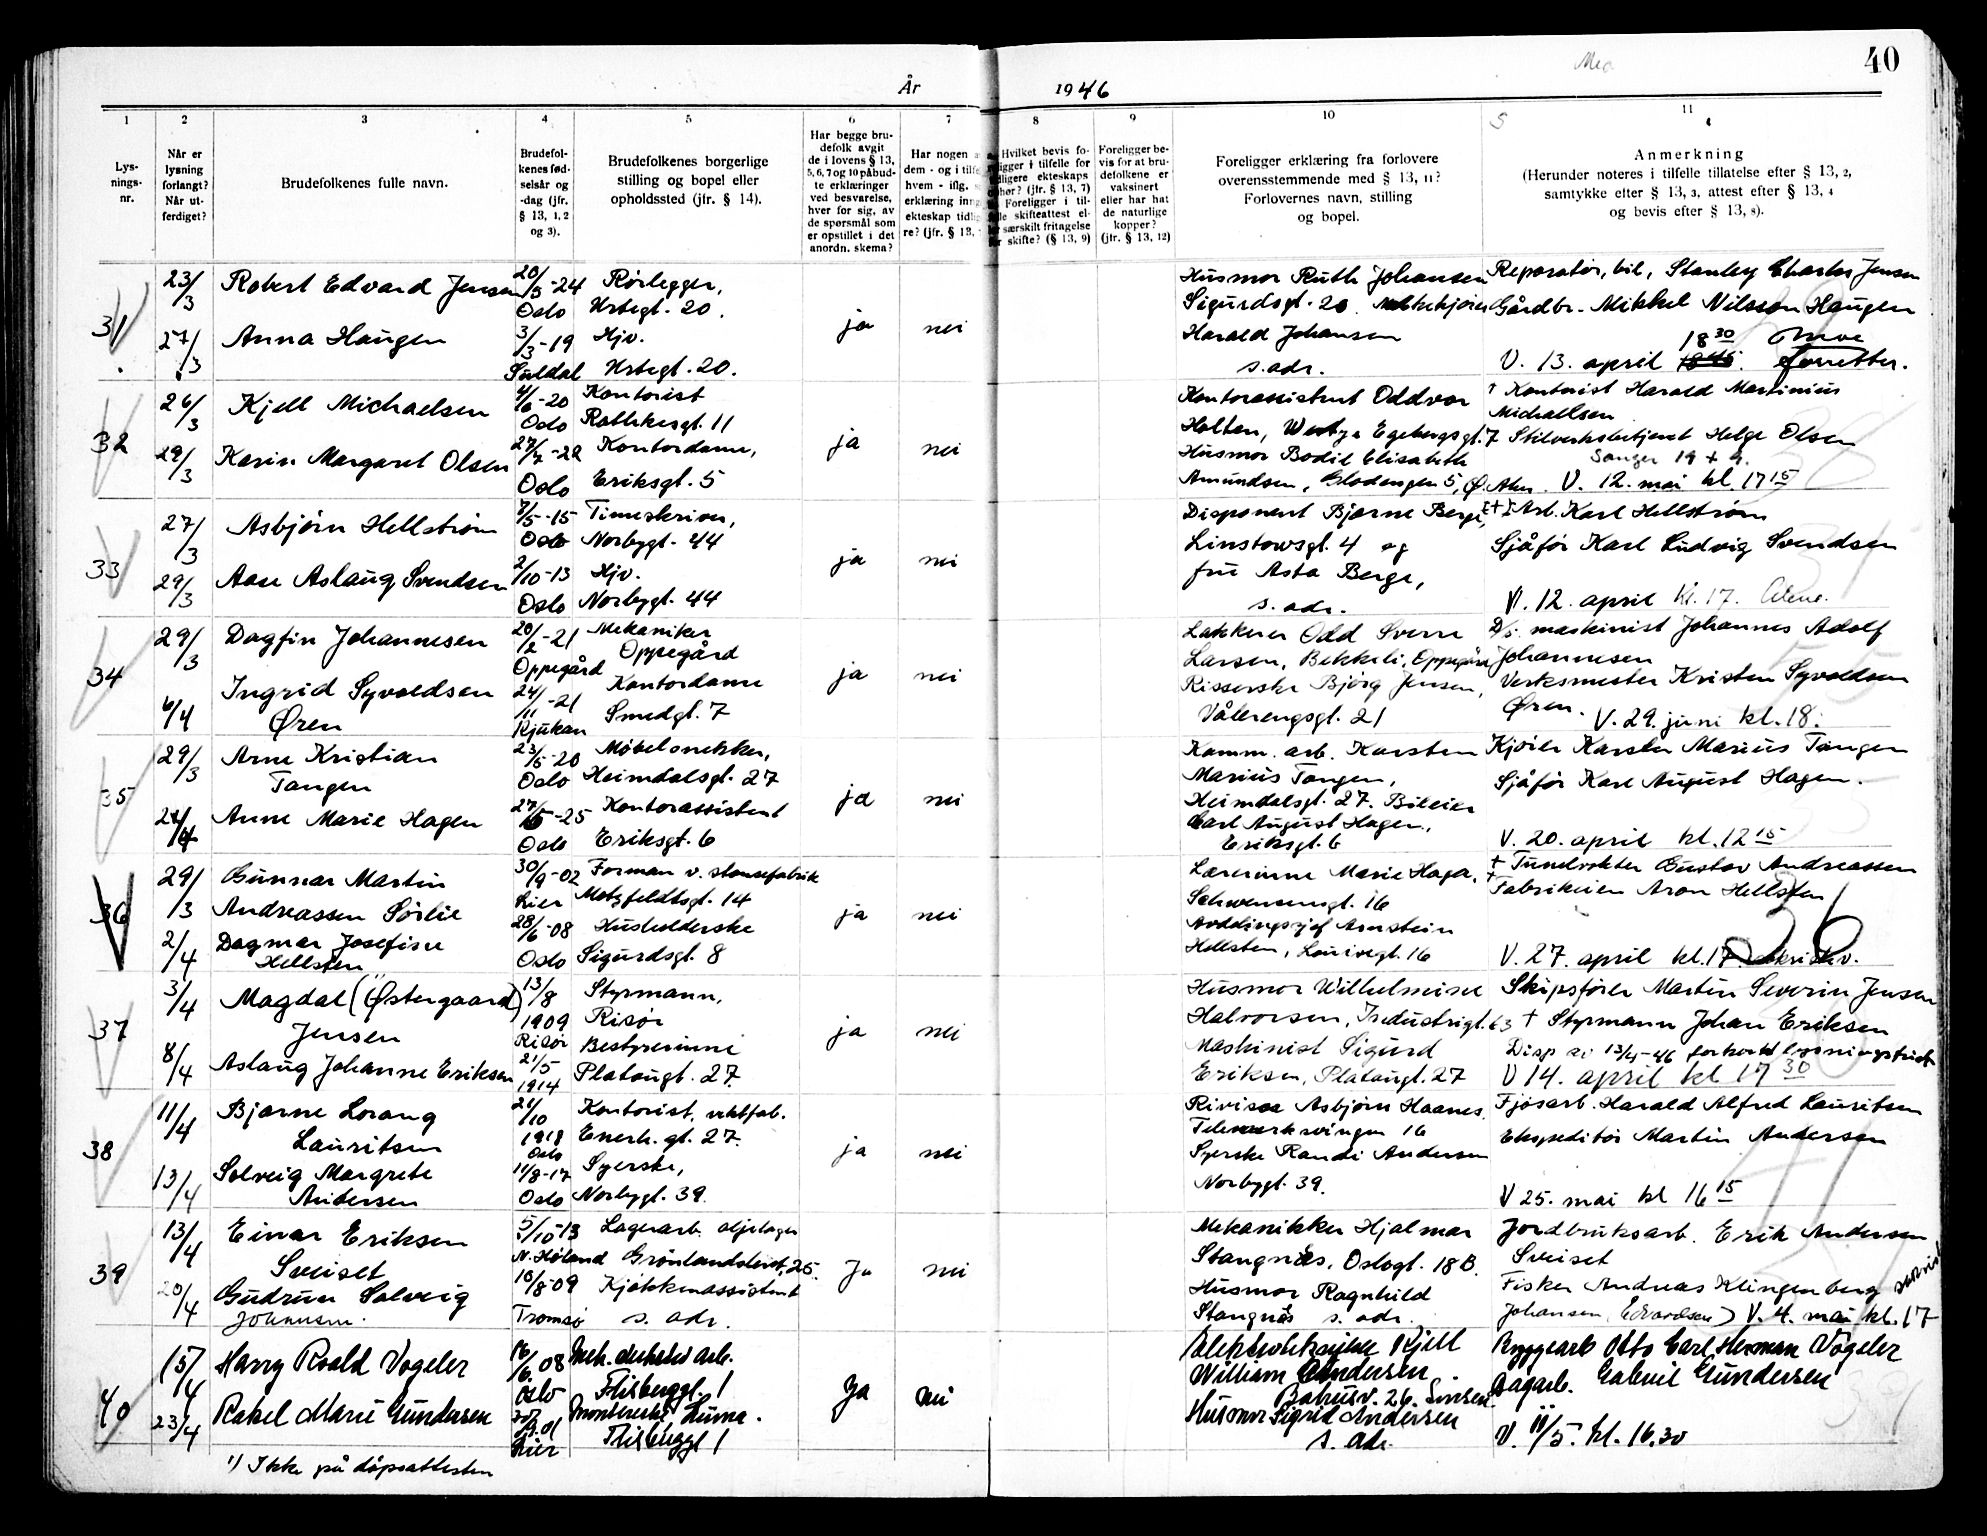 40
År 1946
1 2 3 4 5 6 7 8 9 10 11
Lys-
nings-
nr.
Når er
lysning
forlangt?
Når ut-
ferdiget?
Brudefolkenes fulle navn.
Brudefol-
kenes fød-
selsår og
-dag (jfr.
§ 13, 1, 2
og 3).
Brudefolkenes borgerlige
stilling og bopel eller
opholdssted (jfr. § 14).
Har begge bru-
defolk avgit
de i lovens § 13,
5, 6, 7 og 10 påbud-
te erklæringer
ved besvarelse,
hver for sig, av
de spørsmål som
er opstillet i det
anordn. skema?
Har nogen a
dem - og i tilfe
hvem - iflg. s
erklæring inng
ekteskap tidlig
re? (jfr. § 13,
Hvilket bevis fo-
ligger i tilfelle for
dligere ekteskaps
hør? (jfr. § 13, 7)
Foreligger i til-
lle skifteattest el-
r særskilt fritagelse
skifte? (§ 13, 9)
Foreligger be-
vis for at bru-
defolkene er
vaksinert
eller har hat
de naturlige
kopper?
(jfr. § 13, 12)
Foreligger erklæring fra forlovere
overensstemmende med § 13, 11?
Forlovernes navn, stilling
og bopel.
Anmerkning
(Herunder noteres i tilfelle tillatelse efter § 13, 2,
samtykke efter § 13, 3, attest efter § 13, 4
og bevis efter § 13, 8).
31
23/3 Robert Edvard Jensen 20/3-24 Rørlegger,
Oslo Urtegt. 20.
27/3 Anna Haugen 3/3-19 Hjv.
Suldal Urtegt. 20.
ja nei
Husmor Ruth Johansen
Sigurdsgt. 20
Harald Johansen
s. adr.
Reparatør, bil, Stanley Charles Jensen
Gårdbr. Mikkel Nilsson Haugen
18 30
V. 13. april
32
26/3 Kjell Michaelsen 4/6-20 Kontorist
Oslo Rathkesgt. 11
29/3 Karin Margaret Olsen 27/7-22 Kontordame,
Oslo Eriksgt. 5
ja nei
Kontorassistent Oddvar
Holten, Westye Egebergsgt. 7
Husmor Bodil Elisabeth
Amundsen, Glads­engen 5, Ø. Aker.
† Kontorist Harald Martinius
Michaelsen
Helge Olsen
V. 12. mai kl. 17 15
33
27/3 Asbjørn Hellstrøm 7/5-15 Timeskriver,
Oslo Norbygt. 44
29/3 Aase Aslaug Svendsen 2/10-13 Hjv.
Oslo Norbygt. 44
ja nei
Disponent Bjarne Berge,
Linstowsgt. 4 og
fru Asta Berge,
s. adr.
Arb. Karl Hellstrøm
Sjåfør Karl Ludvig Svendsen
V. 12. april kl. 17. Alene.
34
29/3 Dagfin Johannesen 20/2-21 Mekaniker
Oppegård Oppegård
6/4 Ingrid Syvoldsen 24/11-21 Kontordame
Øren Rjukan Smedgt. 7
ja nei
Lakkerer Odd Sverre
Larsen, Bekkeli, Oppegård
Risserske Bjørg Jensen,
Vålerengsgt. 21
D/s. maskinist Johannes Adolf
Johannesen
Verksmester Kristen Syvoldsen
Øren. V. 29. juni kl. 18.
35
29/3 Arne Kristian 23/5-20 Møbelsnekker,
Tangen Oslo Heimdalsgt. 27
24/4 Anne Marie Hagen 27/5-25 Kontorassistent
Oslo Eriksgt. 6
ja nei
Komm. arb. Karsten
Marius Tangen,
Heimdalsgt. 27. Bileier
Carl August Hagen,
Eriksgt. 6
Kjører Karsten Marius Tangen
Sjåfør Karl August Hagen.
V. 20. april kl. 12 15
36
29/3 Gunnar Martin 30/9-02 Forman v. stansefabrik
Andreassen Sørlie Lier Motzfeldtsgt. 14
2/4 Dagmar Josefine 28/6-08 Husholderske
Hellsten Oslo Sigurdsgt. 8
ja nei
Lærerinne Marie Haga,
Schwensensgt. 16
Avdelingssjef Arnstein
Hellsten, Louisegt. 16
† Tunelvokter Gustav Andreassen
† Fabrikeier Aron Hellsten
36
V. 27. april kl. 17
37
3/4 Magdal (Østergaard) 1) 13/8 Styrmann,
Jensen 1909 Risør
Risør Bestyrerinne
8/4 Aslaug Johanne Eriksen 21/5 1914 Platougt. 27.
ja nei
Husmor Wilhelmine
Halvorsen, Industrigt. 63
Maskinist Sigurd
Eriksen, Platougt. 27
Skipsfører Martin Severin Jensen
† Styrmann Johan Eriksen
Disp av 13/4-46 forkortet lysningsfrist
V 14. april kl 17 30
38
11/4 Bjarne Lorang 21/10 Kontorist, vektfab.
Lauritsen 1918 Enerh. gt. 27.
Oslo
13/4 Solveig Margrete 11/8-17 Syerske,
Andersen Oslo Norbygt. 39.
ja nei
Revisor Asbjørn Haanes
Telemarksvingen 16
Syerske Randi Andersen
Norbygt. 39.
Fjøsarb. Harald Alfred Lauritsen
Ekspeditør Martin Andersen
V 25. mai kl 16 15
39
13/4 Einar Eriksen 5/10-13 Lagerarb. oljelager
Sveiset N. Høland Grønlandsleiret, 25.
20/4 Gudrun Solveig 10/8-09 Kjøkkenassistent
Johansen. Tromsø s. adr.
Ja nei
Mekanikker Hjalmar
Stangnes, Oslogt. 18 B.
Husmor Ragnhild
Stangnes s. adr.
Jordbruksarb. Erik Andersen
Sveiset
Fisker Andreas Klingenberg
Johansen (Edvardsen) V. 4. mai kl. 17
40
15/4 Harry Roald Vogeler 16/6.08 Mek. verksted arb.
Oslo Flisberggt. 1
23/4 Rakel Marie Gundersen Montereske Luma.
Lier Flisberggt 1
Ja nei
Kjell
William Gundersen.
Bakerv. 26. Sinsen.
Husmor Sigrid Andersen
s. adr.
Byggearb Otto Carl Herman Vogeler
Dagarb. Gabriel Gundersen
V. 11/5. kl. 16.30
1) Ikke på dåpsattesten